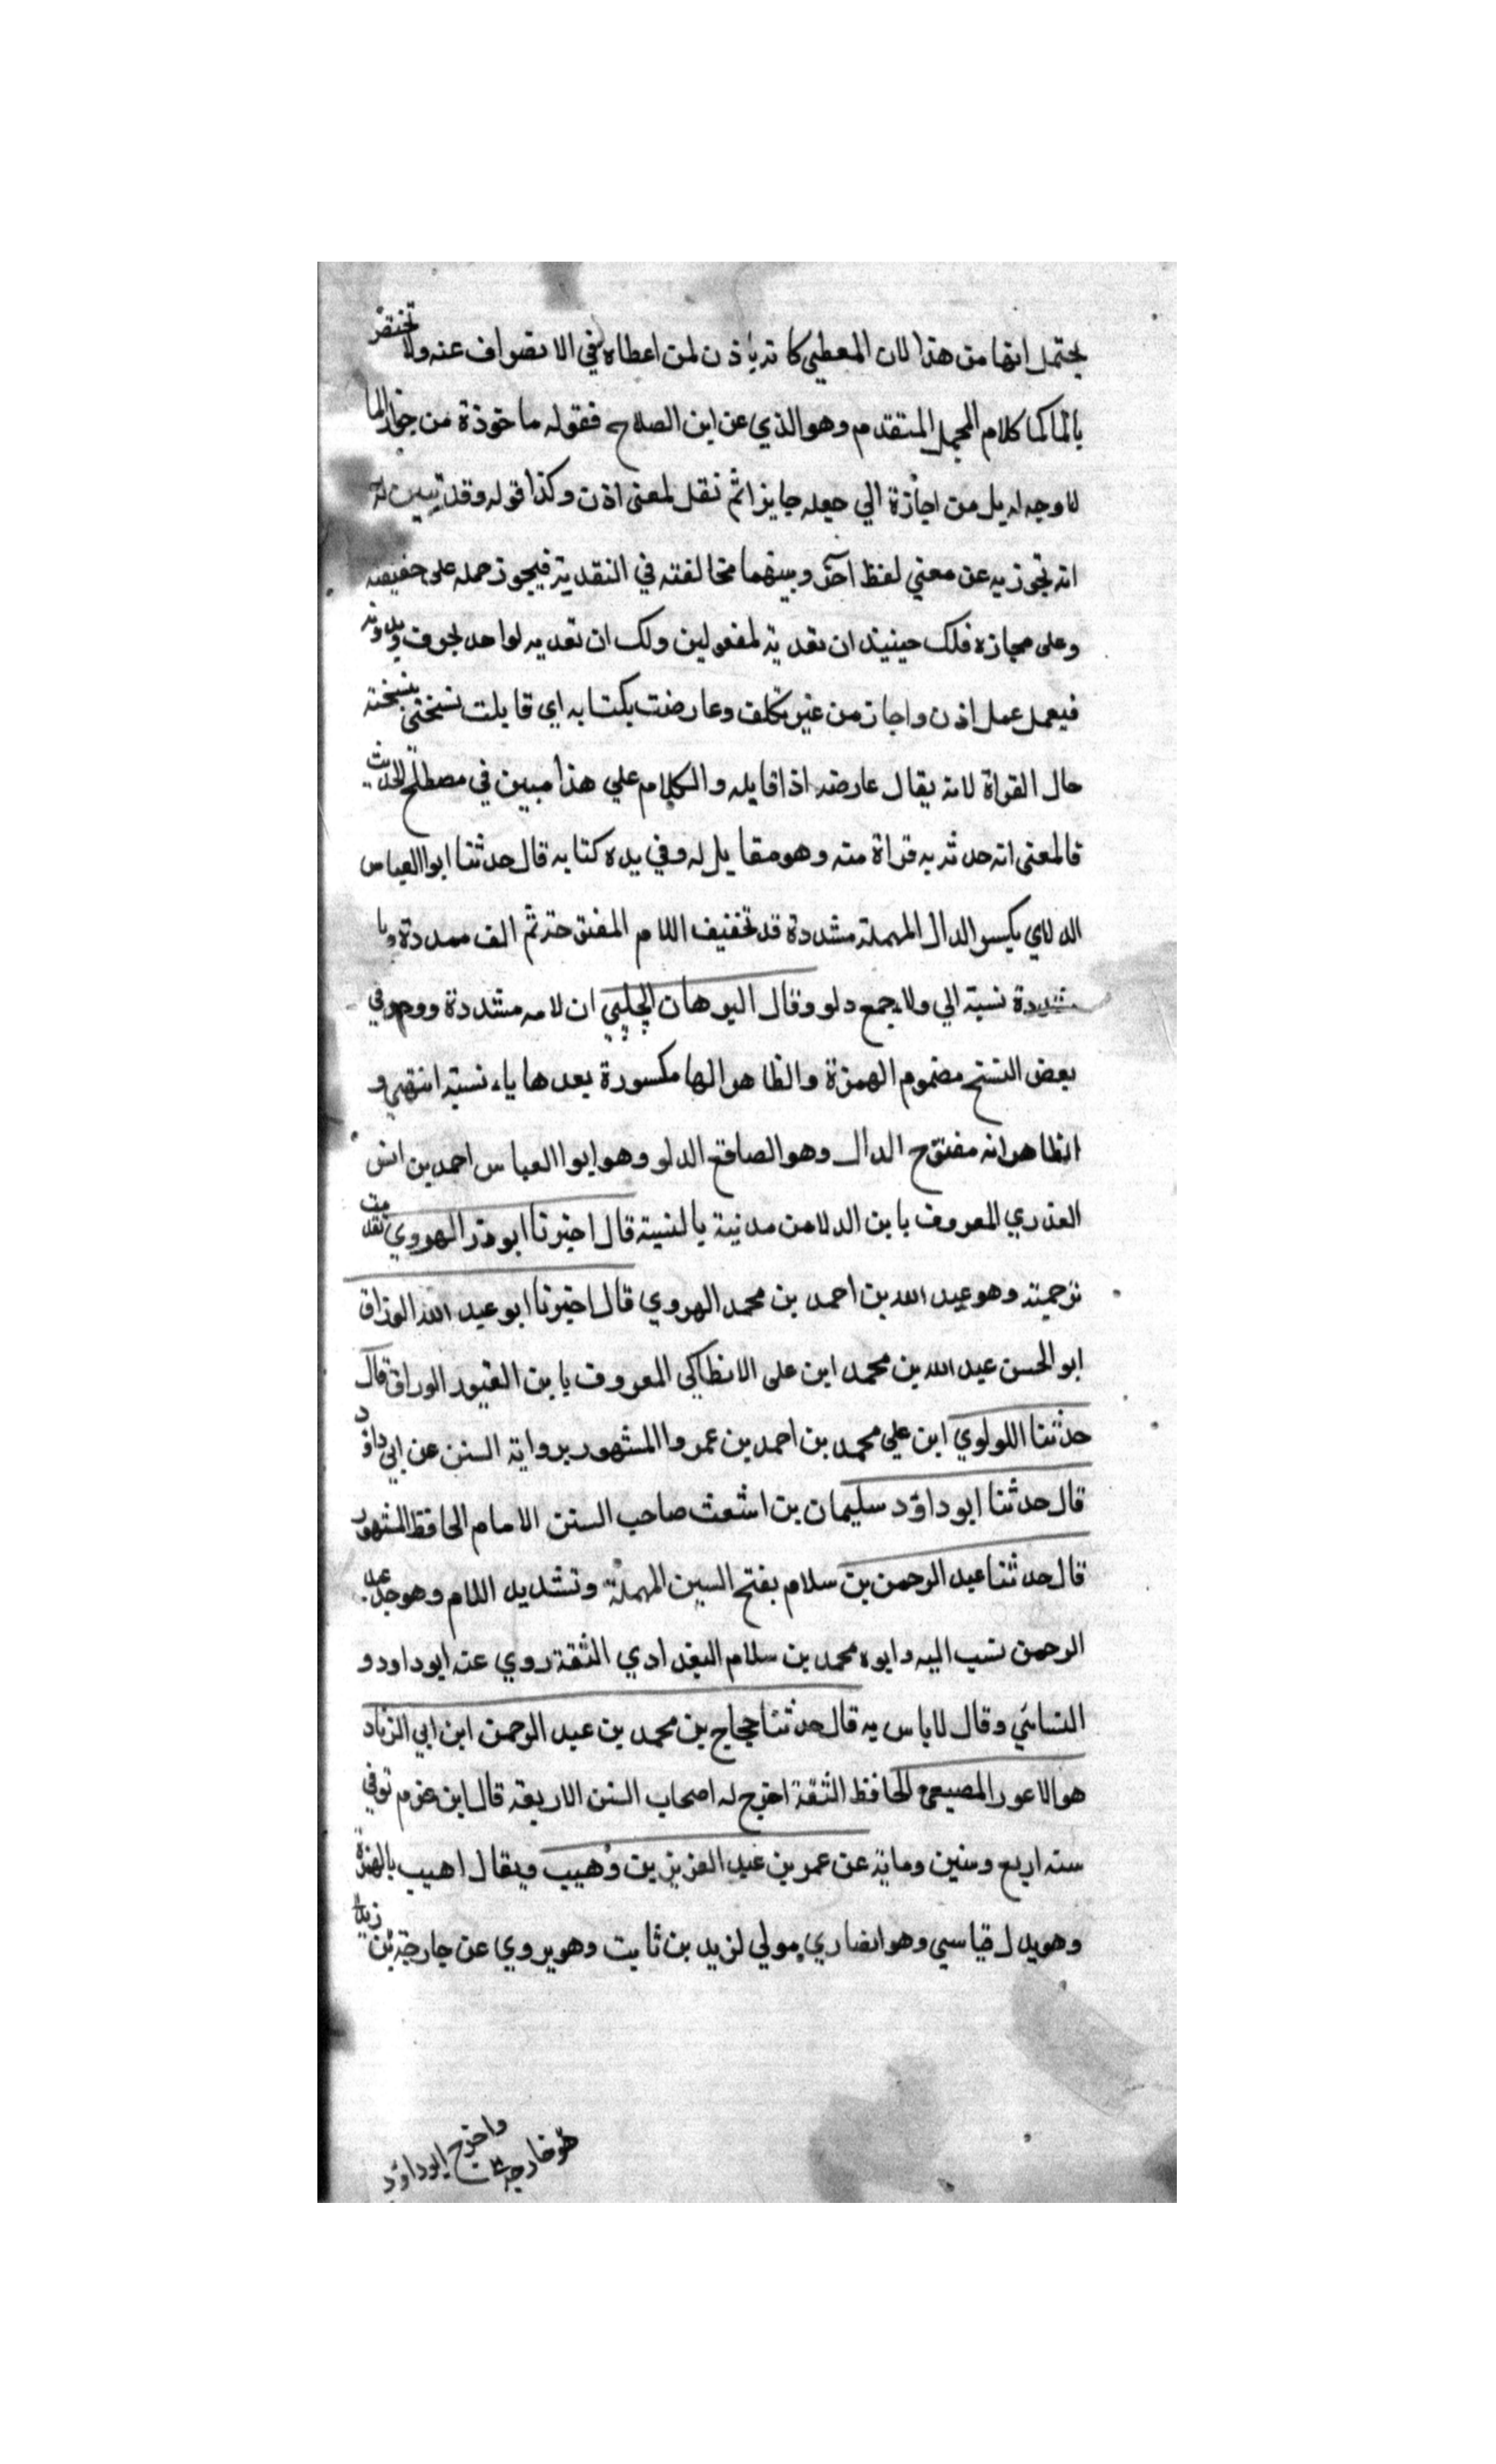 يحتمل انها من هذا لان المعطي كانه ياذن لمن اعطاه في الانصراف عنه ولا تختص
بالما كما كلام المجمل المتقدم وهو الذي عن ابن الصلاح فقوله ماخوذة من جواز الما
لا وجه له بل من اجازة الي جعله جايزا ثم نقل لمعنى اذن وكذا قوله وقد تبين له
انه تجوز به عن معني لفظ آخر وبينهما مخالفته في التقدية فيجوز حمله على حقيقيه
وعلى مجازه فلك حينيذ ان تعديه لمفعولين ولك ان تعديه لواحد بحرف وبدونه
فيعمل عمل اذن واجاز من غير تكلف وعارضت بكتابه اي قابلت نسختي بنسخته
حال القراة لانه يقال عارضه اذا قابله والكلام علي هذا مبين في مصطلح الحديث
فالمعنى انه حدثه به قراة منه وهو مقابل له وفي يده كتابه قال حدثنا ابوا العباس
الدلاي بكسر الدال المهملة مشددة قد تخفيف اللام المفتوحة ثم الف ممددة ويا
مشددة نسبة الي ولا جمع دلو وقال البرهان الحلبي ان لامه مشددة ووجد في
بعض النسخ مضموم الهمزة والظاهر انها مكسورة بعدها ياء نسبة انتهي و
الظاهر انه مفتوح الدال وهو الصافع الدلو وهو ابوا العباس احمد بن انس
العذري المعروف بابن الدلا من مدنية بالنسية قال اخبرنا ابو ذر الهروي تقدمت
ترجمته وهو عبد الله بن احمد بن محمد الهروي قال اخبرنا ابو عبد الله الوراق
ابو الحسن عبد الله بن محمد ابن على الانطاكي المعروف بابن القيود الوراق قال
حدثنا اللولوي ابن علي محمد بن احمد بن عمروا المشهور برواية السنن عن ابي داؤد
قال حدثنا ابو داؤد سليمان بن اشعث صاحب السنن الامام الحافظ المشهور
قال حدثنا عبد الرحمن بن سلام بفتح السين المهملة وتشديد اللام وهو جد عبد
الرحمن نسب اليه وابوه محمد بن سلام البغدادي الثقة روي عنه ابو داود و
النسائي وقال لاباس به قال حدثنا حجاج بن محمد بن عبد الرحمن ابن ابي الزناد
هو الاعور المصيصي الحافظ الثقة اخرج له اصحاب السنن الاربعة قال ابن عزم توفي
سنه اربع وستين وماية عن عمر بن عبد العزيز بن وهيب ويقال اهيب بالهمزة
وهو بدل قياسي وهو انصاري مولي لزيد بن ثابت وهو يروي عن جارجة بن زيد
هو خارجة
واخرج ابوداؤد